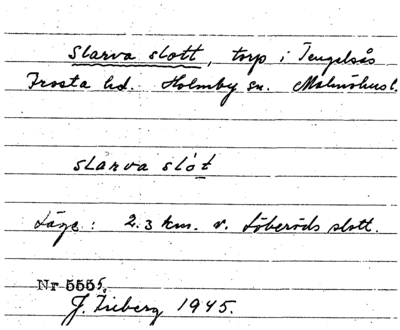 Slarva slott, torp i Tengelsås
Frosta hd. Holmby sn. Malmöhus l.
slarva slót
Läge: 2.3 km. v. Löberöds slott.
Nr 5555.
J. Tuberg 1945.